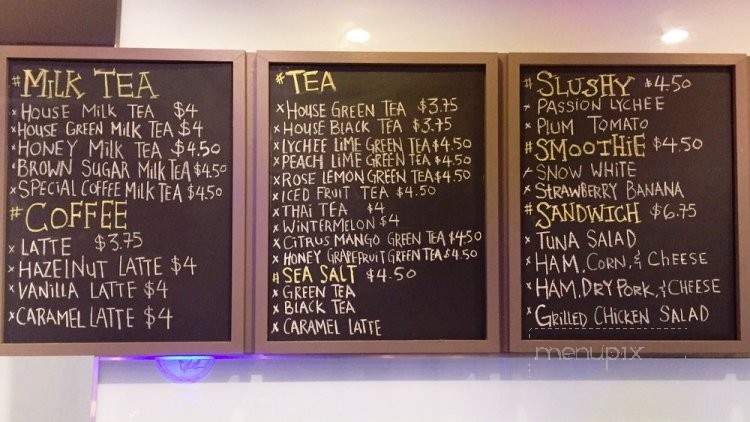 #MILK TEA
× HOUSE MILK TEA $4
× HOUSE GREEN MILK TEA $4
× HONEY MILK TEA $4.50
× BROWN SUGAR MILK TEA $4.50
× SPECIAL COFFEE MILK TEA $4.50
#COFFEE
× LATTE $3.75
× HAZELNUT LATTE $4
× VANILLA LATTE $4
× CARAMEL LATTE $4
#TEA
× HOUSE GREEN TEA $3.75
× HOUSE BLACK TEA $3.75
× LYCHEE LIME GREEN TEA $4.50
× PEACH LIME GREEN TEA $4.50
× ROSE LEMON GREEN TEA $4.50
× ICED FRUIT TEA $4.50
× THAI TEA $4
× WINTERMELON $4
× CITRUS MANGO GREEN TEA $4.50
× HONEY GRAPEFRUIT GREEN TEA $4.50
# SEA SALT $4.50
× GREEN TEA
× BLACK TEA
× CARAMEL LATTE
# SLUSHY $4.50
× PASSION LYCHEE
× PLUM TOMATO
#SMOOTHIE $4.50
× SNOW WHITE
× STRAWBERRY BANANA
#SANDWICH $6.75
× TUNA SALAD
× HAM, CORN, & CHEESE
× HAM, DRY PORK, & CHEESE
× GRILLED CHICKEN SALAD
menupix